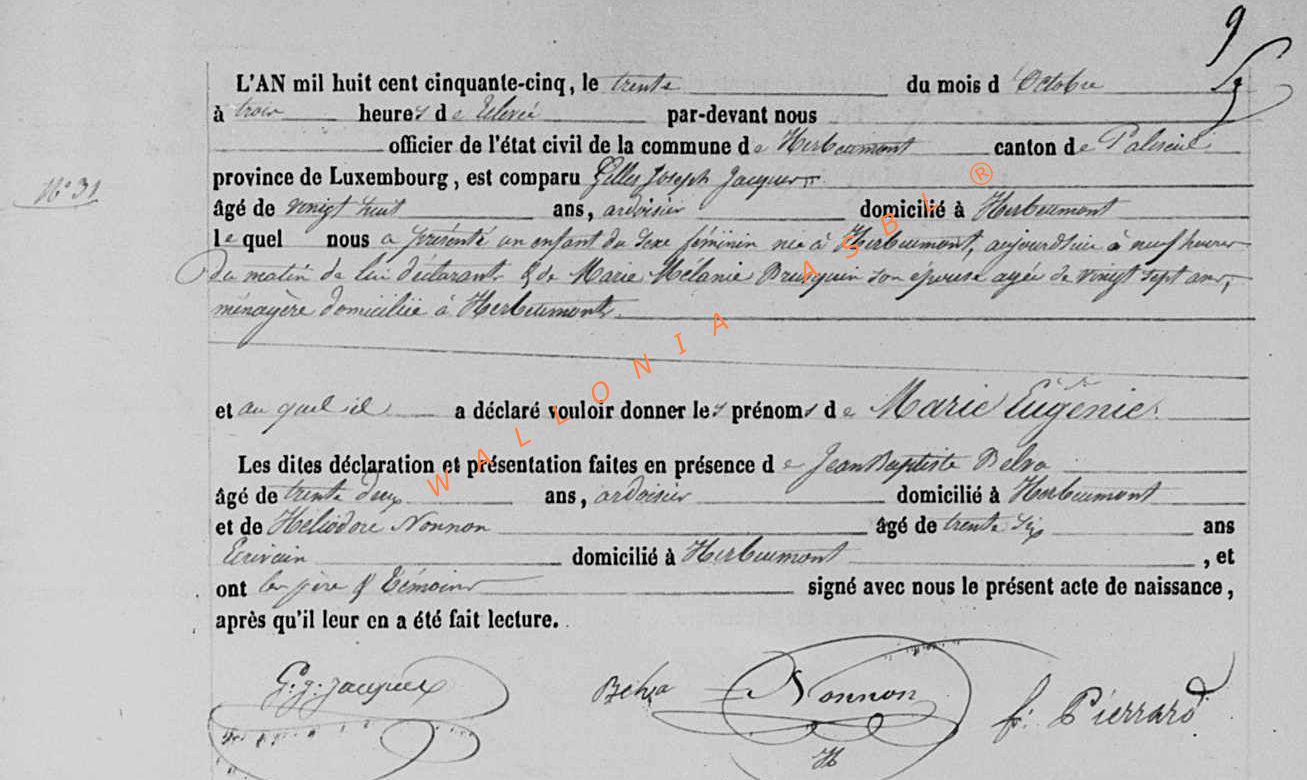 9
L'AN mil huit cent cinquante-cinq, le trente du mois d'Octobre
à trois heures de relevée par-devant nous
officier de l'état civil de la commune de Herbeumont canton de Paliseul
N° 31
province de Luxembourg, est comparu Gilles Joseph Jacques
âgé de vingt huit ans, ardoisier domicilié à Herbeumont
lequel nous a présenté un enfant du sexe féminin née à Herbeumont, aujourd'hui à neuf heures
du matin de lui déclarant & de Marie Mélanie Brusquin son épouse agée de vingt sept ans,
ménagère domiciliée à Herbeumont.
et au quel il a déclaré vouloir donner les prénoms de Marie Eugénie.
Les dites déclaration et présentation faites en présence de Jean Baptiste Belva
âgé de trente deux ans, ardoisier domicilié à Herbeumont
et de Héliodore Nonnon âgé de trente six ans
Ecrivain domicilié à Herbeumont, et
ont les père & témoins signé avec nous le présent acte de naissance,
après qu'il leur en a été fait lecture.
G: J: Jacques Belva Nonnon f: Pierrard
H
WALLONIA ASBL ®